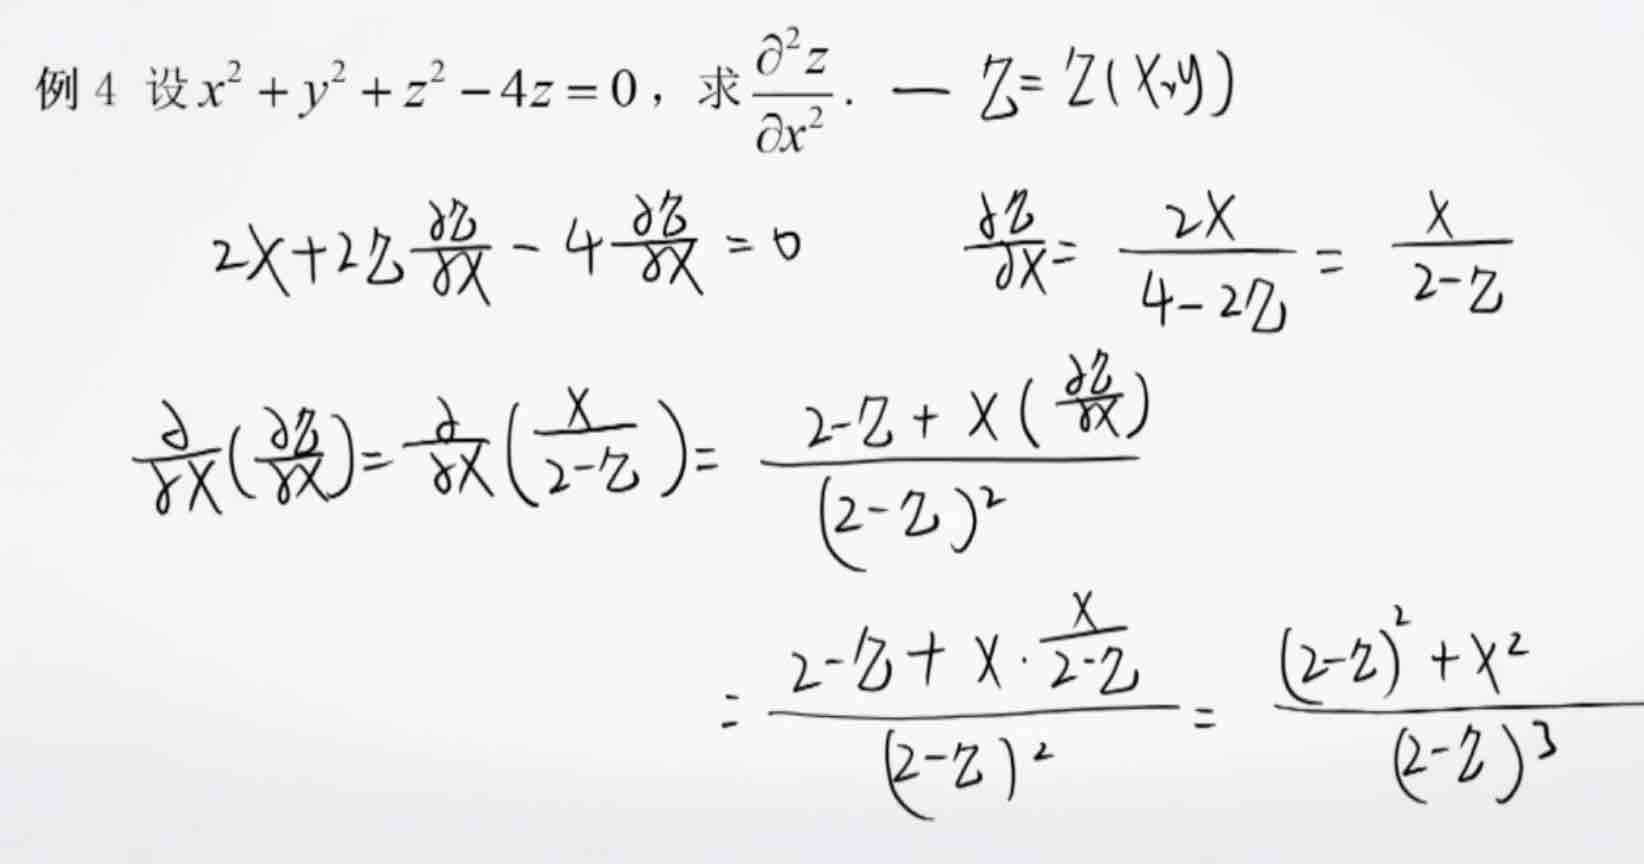 例 4 设 x² + y² + z² − 4z = 0，求 ∂²z/∂x². — z = z(x,y)
2x + 2z ∂z/∂x − 4 ∂z/∂x = 0    ∂z/∂x = 2x/(4−2z) = x/(2−z)
∂/∂x (∂z/∂x) = ∂/∂x (x/(2−z)) = (2−z + x(∂z/∂x))/(2−z)²
= (2−z + x · x/(2−z))/(2−z)² = ((2−z)² + x²)/(2−z)³